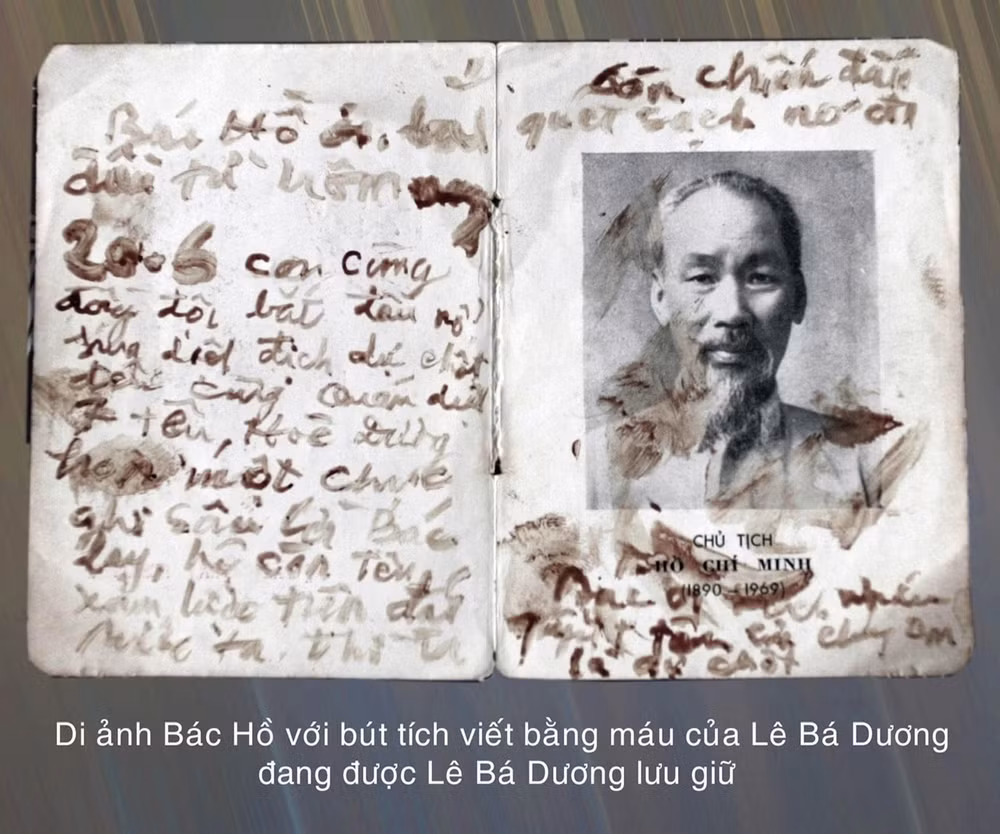 Bác Hồ ơi, bắt
đầu từ hôm nay
20.6 con cùng
đồng đội bắt đầu nổ
súng diệt địch dự chốt
cùng diệt
7 tên, Hoè Dũng
hơn một chúc
ghi sâu lời Bác
dạy, hễ còn tên
xâm lược trên đất
nước ta, thì ta
còn chiến đấu
quét sạch nó đi
CHỦ TỊCH
HỒ CHÍ MINH
(1890 - 1969)
Bác ơi
quyết tâm của chúng con
là dự chốt
Di ảnh Bác Hồ với bút tích viết bằng máu của Lê Bá Dương
đang được Lê Bá Dương lưu giữ